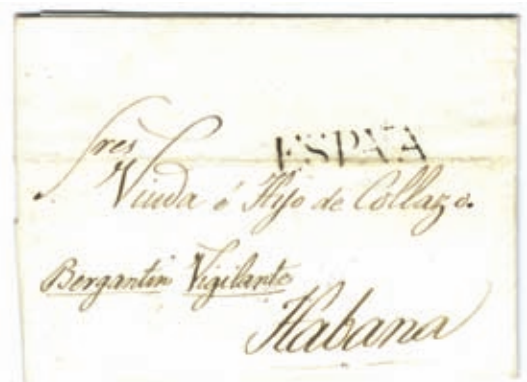 ESPAÑA
Sres
Viuda é Hijo de Collazo.
Bergantin Vigilante
Habana